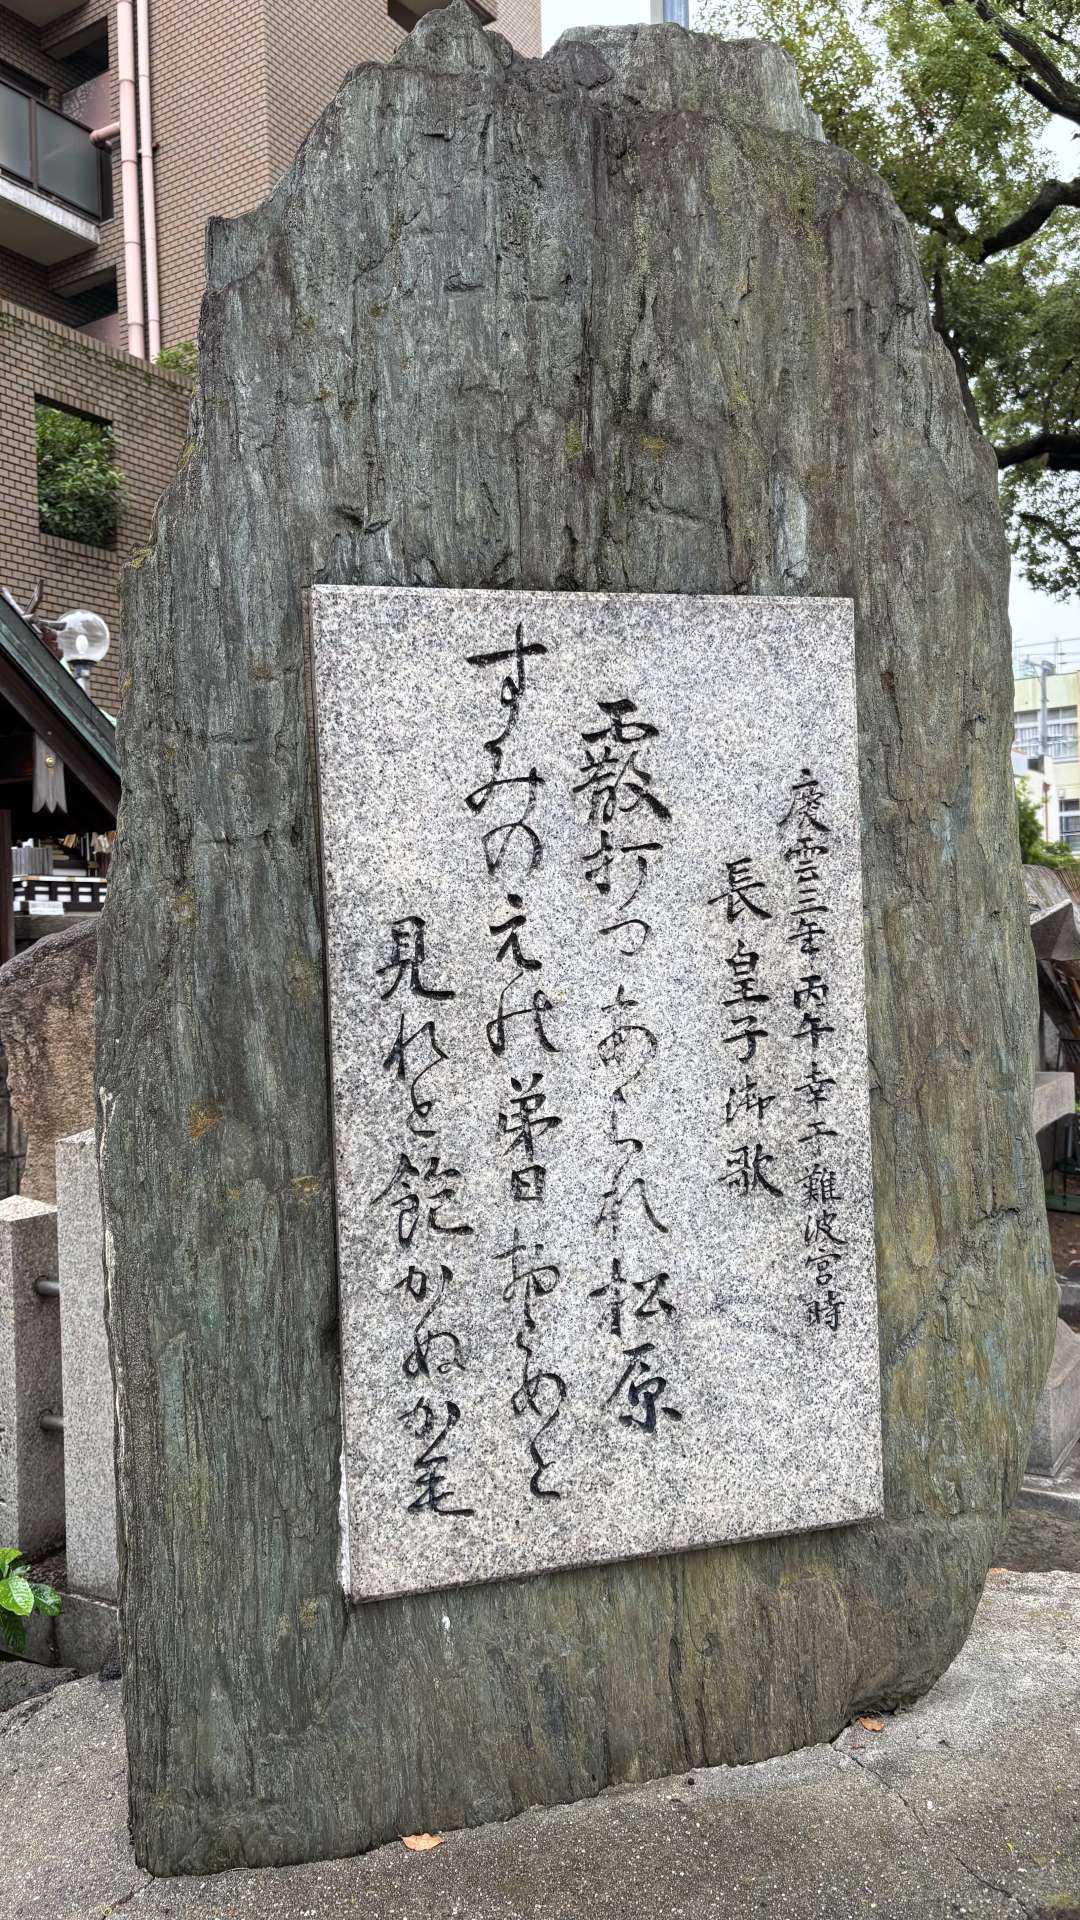 慶雲三年丙午幸于難波宮時
長皇子御歌
霰打つあられ松原
すみのえの弟日おとめと
見れと飽かぬか毛